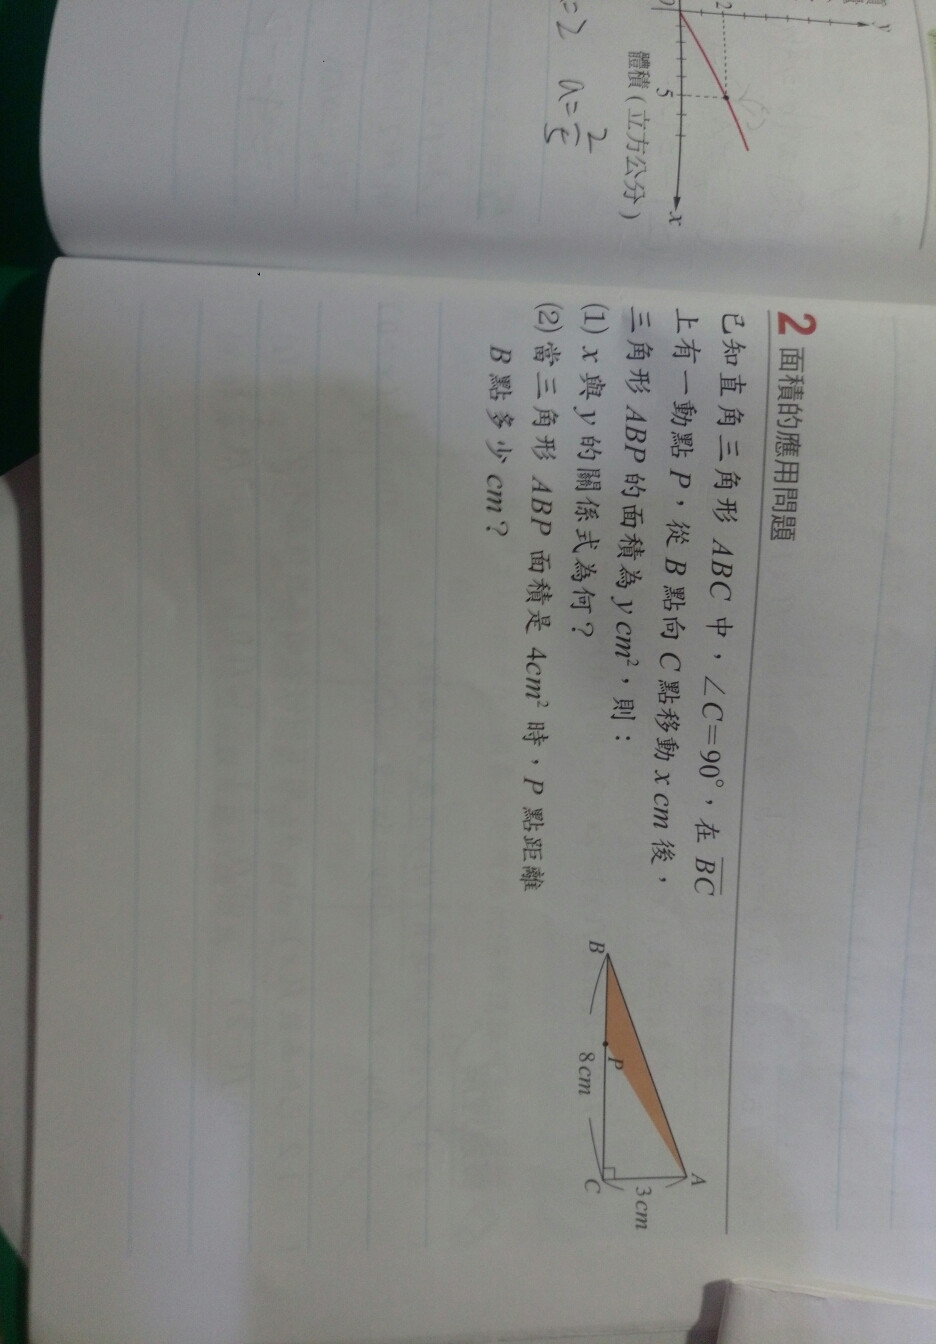 y
2
0
5
x
體積（立方公分）
=2 a=2/5
2 面積的應用問題
已知直角三角形 ABC 中，∠C=90°，在 BC
上有一動點 P，從 B 點向 C 點移動 x cm 後，
三角形 ABP 的面積為 y cm²，則：
(1) x 與 y 的關係式為何？
(2) 當三角形 ABP 面積是 4cm² 時，P 點距離
B 點多少 cm？
A
3cm
B
P
C
8cm